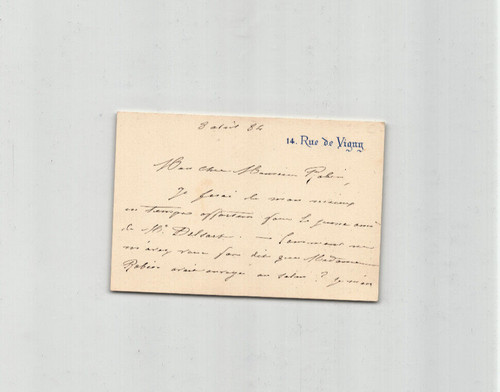 8 avril 84
14. Rue de Vigny
Mon cher Monsieur Robin,
Je ferai de mon mieux
en temps opportun pour le jeune ami
de Mr Delsart. — Comment ne
m'avez vous pas dit que Madame
Robin avait envoyé au salon ? Je m'en